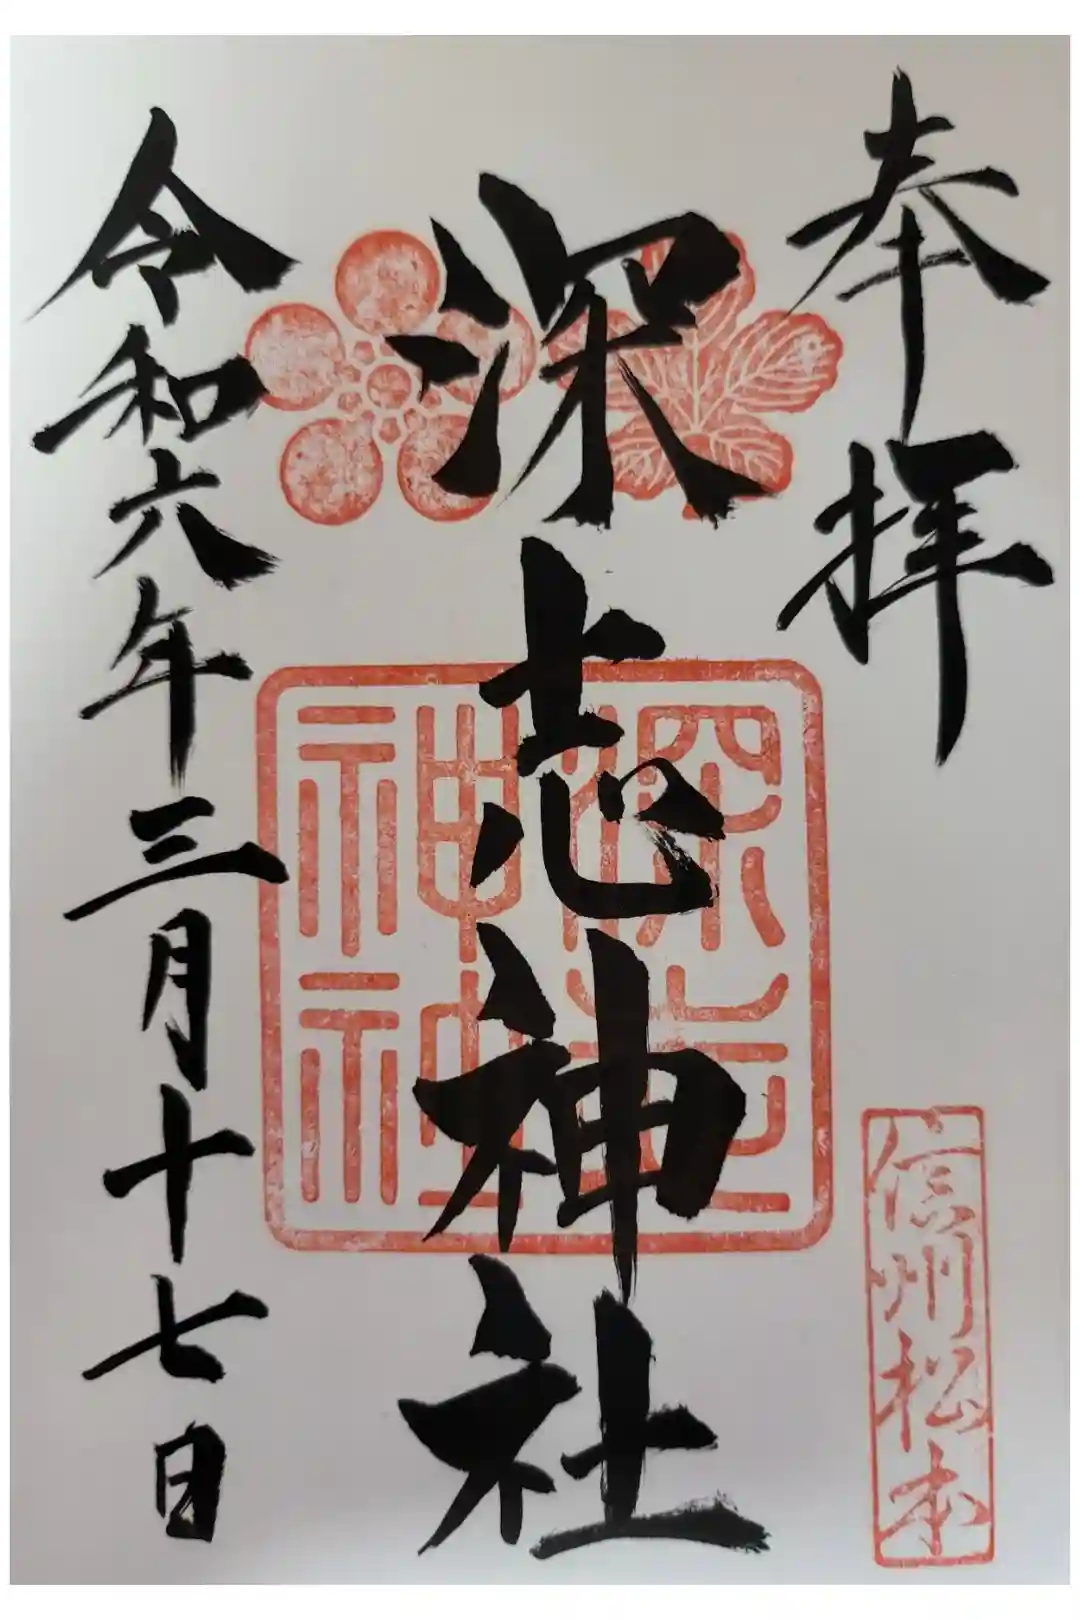 奉拝
信州松本
深志神社
深志
神社
令和六年三月十七日